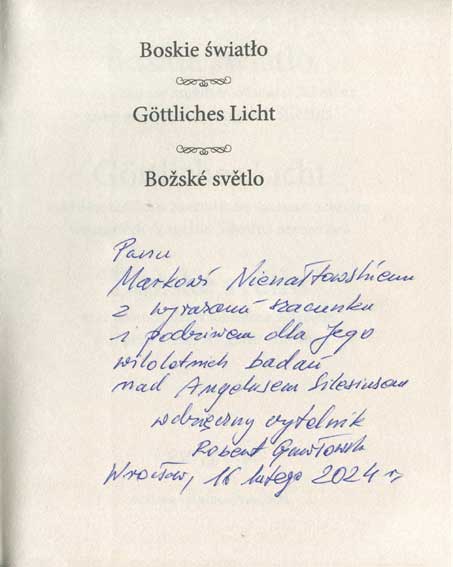 Boskie światło
Göttliches Licht
Božské světlo
Panu
Markowi Nienałtowskiemu
z wyrazami szacunku
i podziwem dla Jego
wiloletnich badań
nad Angelusem Silesiusem
wdzięczny czytelnik
Robert
Wrocław, 16 lutego 2024 r.